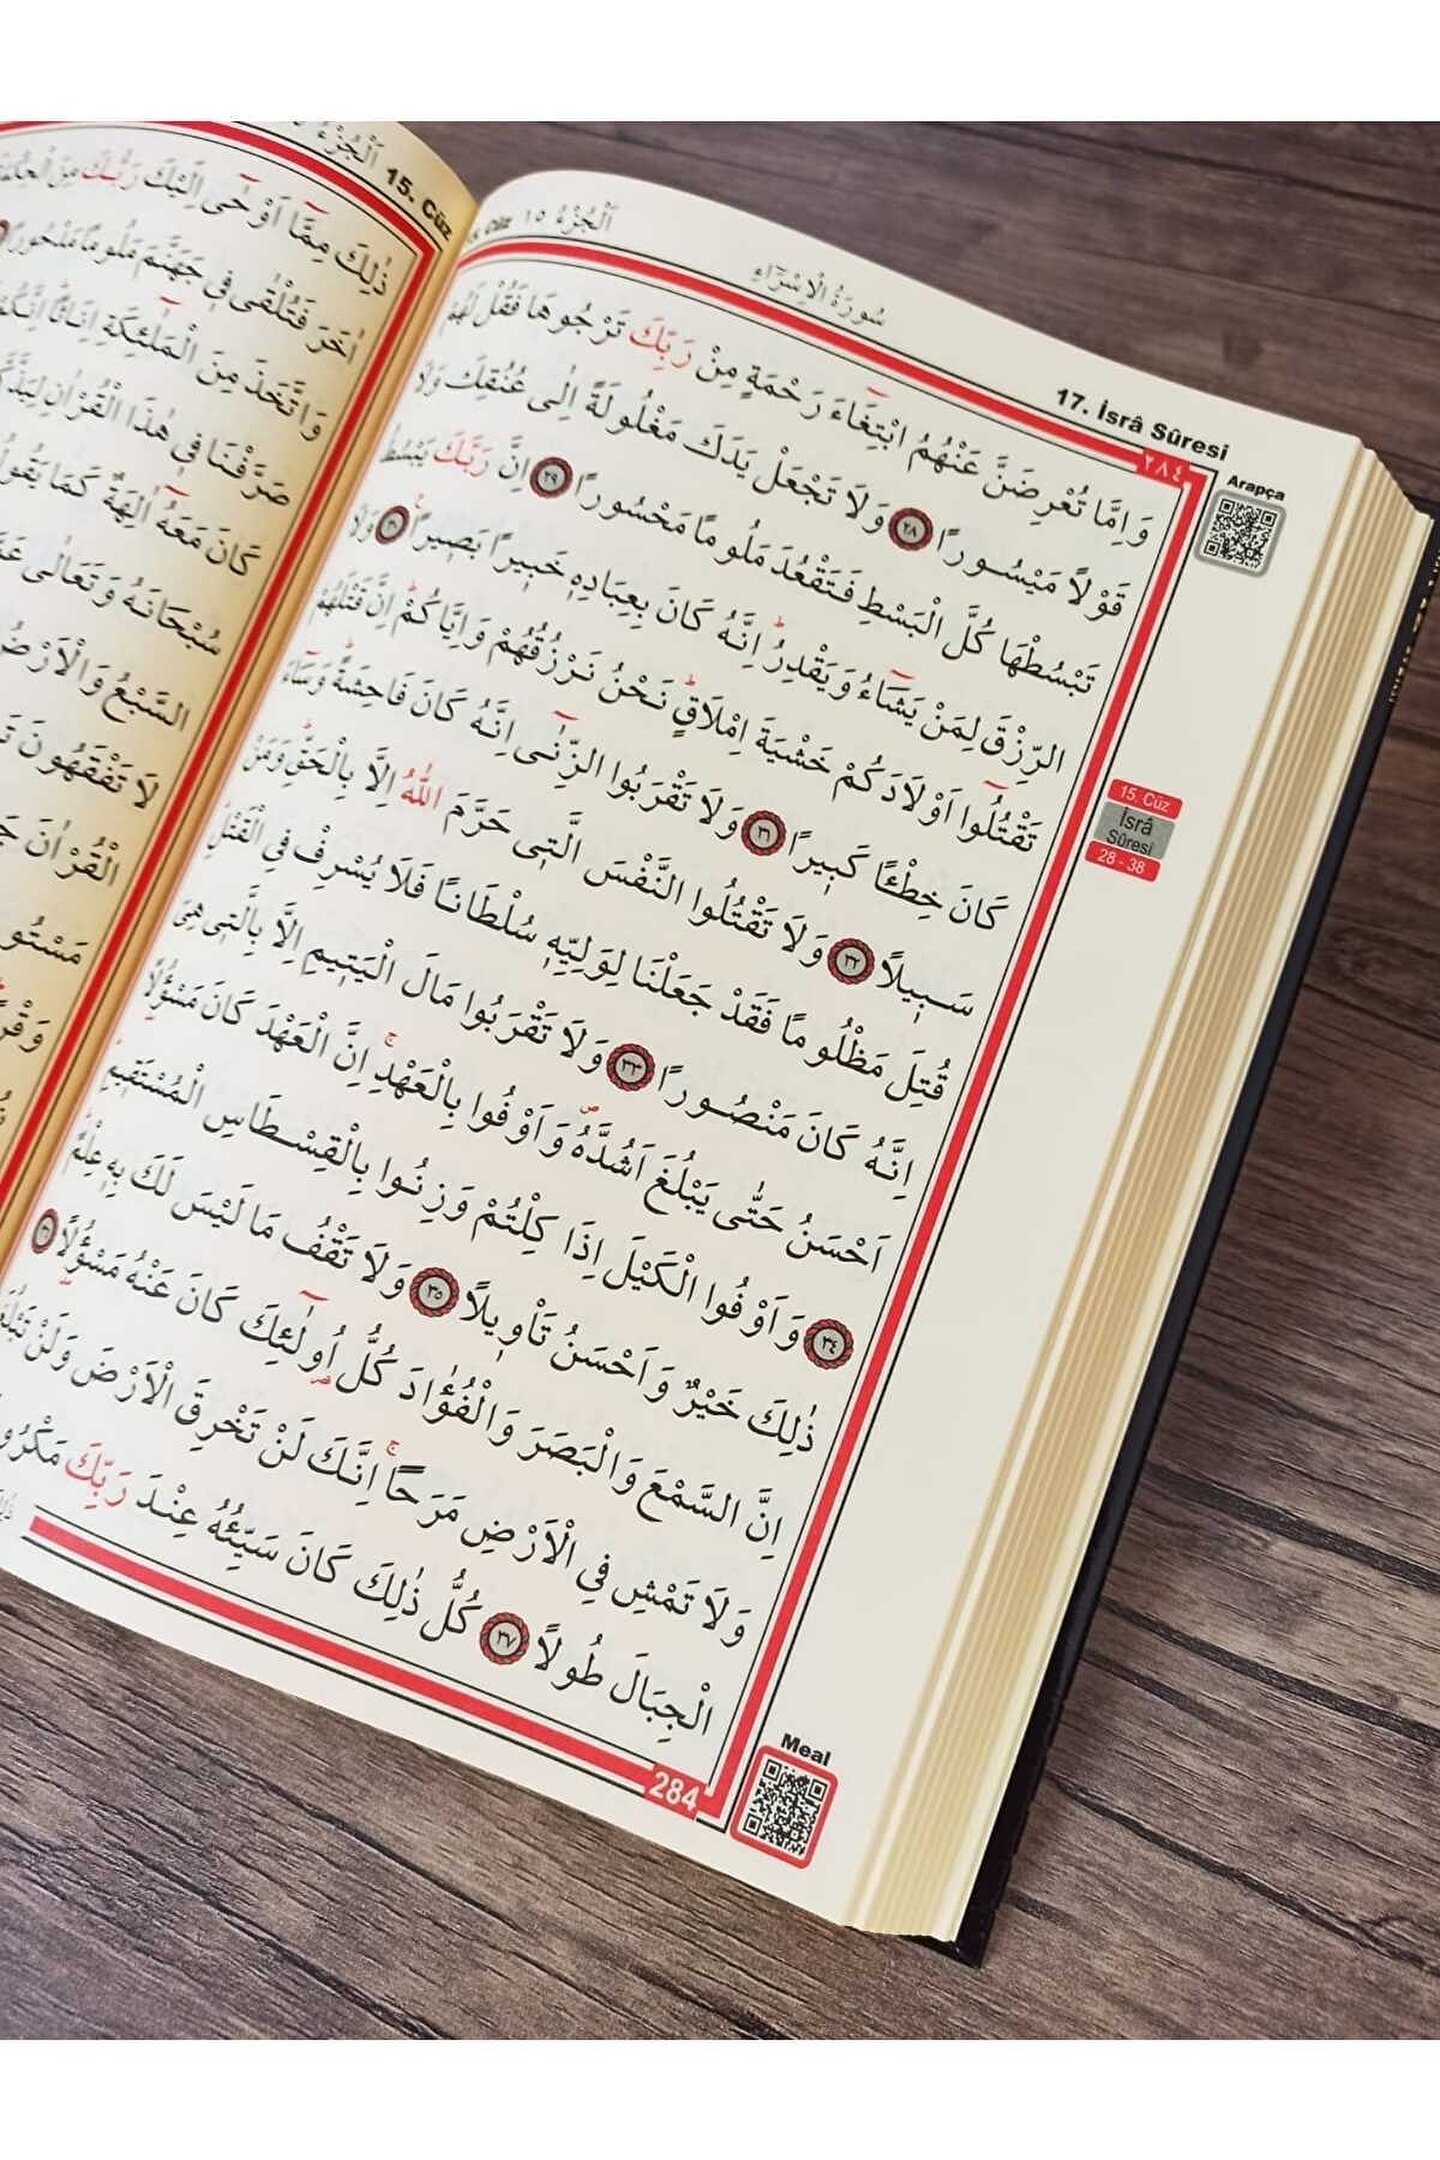 اَلْجُزْءُ ١٥
سُورَةُ الْاِسْرَٓاءِ
17. İsrâ Sûresi
٢٨٤
وَاِمَّا تُعْرِضَنَّ عَنْهُمُ ابْتِغَٓاءَ رَحْمَةٍ مِنْ رَبِّكَ تَرْجُوهَا فَقُلْ لَهُمْ
قَوْلًا مَيْسُورًا ٢٨ وَلَا تَجْعَلْ يَدَكَ مَغْلُولَةً اِلٰى عُنُقِكَ وَلَا
تَبْسُطْهَا كُلَّ الْبَسْطِ فَتَقْعُدَ مَلُومًا مَحْسُورًا ٢٩ اِنَّ رَبَّكَ يَبْسُطُ
الرِّزْقَ لِمَنْ يَشَٓاءُ وَيَقْدِرُۜ اِنَّهُ كَانَ بِعِبَادِه۪ خَب۪يرًا بَص۪يرًا۟ ٣٠ وَلَا
تَقْتُلُٓوا اَوْلَادَكُمْ خَشْيَةَ اِمْلَاقٍۜ نَحْنُ نَرْزُقُهُمْ وَاِيَّاكُمْۜ اِنَّ قَتْلَهُمْ
كَانَ خِطْـًٔا كَب۪يرًا ٣١ وَلَا تَقْرَبُوا الزِّنٰٓى اِنَّهُ كَانَ فَاحِشَةًۜ وَسَٓاءَ
سَب۪يلًا ٣٢ وَلَا تَقْتُلُوا النَّفْسَ الَّت۪ي حَرَّمَ اللّٰهُ اِلَّا بِالْحَقِّۜ وَمَنْ
قُتِلَ مَظْلُومًا فَقَدْ جَعَلْنَا لِوَلِيِّه۪ سُلْطَانًا فَلَا يُسْرِفْ فِي الْقَتْلِۜ
اِنَّهُ كَانَ مَنْصُورًا ٣٣ وَلَا تَقْرَبُوا مَالَ الْيَت۪يمِ اِلَّا بِالَّت۪ي هِيَ
اَحْسَنُ حَتّٰى يَبْلُغَ اَشُدَّهُۖ وَاَوْفُوا بِالْعَهْدِۚ اِنَّ الْعَهْدَ كَانَ مَسْؤُ۫لًا
٣٤ وَاَوْفُوا الْكَيْلَ اِذَا كِلْتُمْ وَزِنُوا بِالْقِسْطَاسِ الْمُسْتَق۪يمِۜ
ذٰلِكَ خَيْرٌ وَاَحْسَنُ تَأْو۪يلًا ٣٥ وَلَا تَقْفُ مَا لَيْسَ لَكَ بِه۪ عِلْمٌۜ
اِنَّ السَّمْعَ وَالْبَصَرَ وَالْفُؤٰادَ كُلُّ اُو۬لٰٓئِكَ كَانَ عَنْهُ مَسْؤُ۫لًا ٣٦
وَلَا تَمْشِ فِي الْاَرْضِ مَرَحًاۚ اِنَّكَ لَنْ تَخْرِقَ الْاَرْضَ وَلَنْ
الْجِبَالَ طُولًا ٣٧ كُلُّ ذٰلِكَ كَانَ سَيِّئُهُ عِنْدَ رَبِّكَ
284
Arapça
15. Cüz
İsrâ
Sûresi
28 - 38
Meal
اَلْجُزْءُ
15. Cüz
ذٰلِكَ مِمَّٓا اَوْحٰٓى اِلَيْكَ رَبُّكَ مِنَ
اٰخَرَ فَتُلْقٰى ف۪ي جَهَنَّمَ مَلُومًا مَدْحُورًا
وَاتَّخَذَ مِنَ الْمَلٰٓئِكَةِ اِنَاثًاۜ
صَرَّفْنَا ف۪ي هٰذَا الْقُرْاٰنِ
كَانَ مَعَهُٓ اٰلِهَةٌ كَمَا
سُبْحَانَهُ وَتَعَالٰى
السَّبْعُ وَالْاَرْضُ
لَا تَفْقَهُونَ
الْقُرْاٰنَ